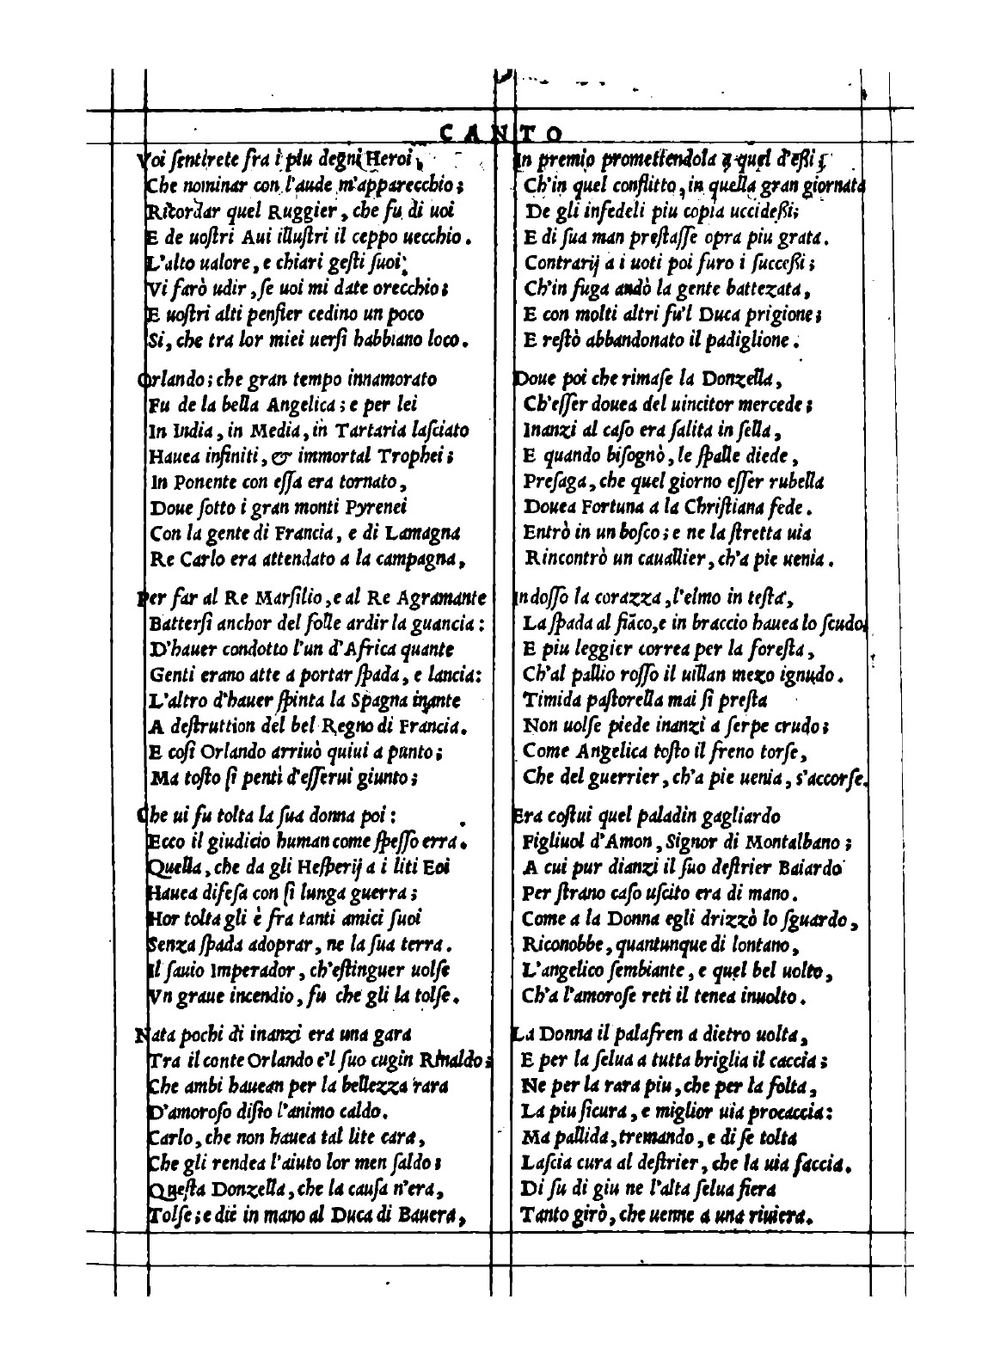 CANTO
Voi ſentirete fra i piu degni Heroi,
Che nominar con laude m'apparecchio;
Ricordar quel Ruggier, che fu di uoi
E de uoſtri Aui illuſtri il ceppo uecchio.
L'alto ualore, e chiari geſti ſuoi
Vi farò udir, ſe uoi mi date orecchio;
E uoſtri alti penſier cedino un poco
Si, che tra lor miei uerſi habbiano loco.
Orlando; che gran tempo innamorato
Fu de la bella Angelica; e per lei
In India, in Media, in Tartaria laſciato
Hauea infiniti, & immortal Trophei;
In Ponente con eſſa era tornato,
Doue ſotto i gran monti Pyrenei
Con la gente di Francia, e di Lamagna
Re Carlo era attendato a la campagna,
Per far al Re Marſilio, e al Re Agramante
Batterſi anchor del folle ardir la guancia:
D'hauer condotto l'un d'Africa quante
Genti erano atte a portar ſpada, e lancia:
L'altro d'hauer ſpinta la Spagna inante
A deſtruttion del bel Regno di Francia.
E coſi Orlando arriuò quiui a punto;
Ma toſto ſi pentì d'eſſerui giunto;
Che ui fu tolta la ſua donna poi:
Ecco il giudicio human come ſpeſſo erra.
Quella, che da gli Heſperij a i liti Eoi
Hauea difeſa con ſi lunga guerra;
Hor tolta gli è fra tanti amici ſuoi
Senza ſpada adoprar, ne la ſua terra.
Il ſauio Imperador, ch'eſtinguer uolſe
Vn graue incendio, fu che gli la tolſe.
Nata pochi dì inanzi era una gara
Tra il conte Orlando e'l ſuo cugin Rinaldo;
Che ambi hauean per la bellezza rara
D'amoroſo diſio l'animo caldo.
Carlo, che non hauea tal lite cara,
Che gli rendea l'aiuto lor men ſaldo;
Queſta Donzella, che la cauſa n'era,
Tolſe; e diè in mano al Duca di Bauera,
In premio promettendola a quel d'eßi;
Ch'in quel conflitto, in quella gran giornata
De gli infedeli piu copia uccideßi;
E di ſua man preſtaſſe opra piu grata.
Contrarij a i uoti poi furo i ſucceßi;
Ch'in fuga andò la gente battezata,
E con molti altri fu'l Duca prigione;
E reſtò abbandonato il padiglione.
Doue poi che rimaſe la Donzella,
Ch'eſſer douea del uincitor mercede;
Inanzi al caſo era ſalita in ſella,
E quando biſognò, le ſpalle diede,
Preſaga, che quel giorno eſſer rubella
Douea Fortuna a la Chriſtiana fede.
Entrò in un boſco; e ne la ſtretta uia
Rincontrò un cauallier, ch'a pie uenia.
Indoſſo la corazza, l'elmo in teſta,
La ſpada al fiãco, e in braccio hauea lo ſcudo,
E piu leggier correa per la foreſta,
Ch'al pallio roſſo il uillan mezo ignudo.
Timida paſtorella mai ſi preſta
Non uolſe piede inanzi a ſerpe crudo;
Come Angelica toſto il freno torſe,
Che del guerrier, ch'a pie uenia, s'accorſe.
Era coſtui quel paladin gagliardo
Figliuol d'Amon, Signor di Montalbano;
A cui pur dianzi il ſuo deſtrier Baiardo
Per ſtrano caſo uſcito era di mano.
Come a la Donna egli drizzò lo ſguardo,
Riconobbe, quantunque di lontano,
L'angelico ſembiante, e quel bel uolto,
Ch'a l'amoroſe reti il tenea inuolto.
La Donna il palafren a dietro uolta,
E per la ſelua a tutta briglia il caccia;
Ne per la rara piu, che per la folta,
La piu ſicura, e miglior uia procaccia:
Ma pallida, tremando, e di ſe tolta
Laſcia cura al deſtrier, che la uia faccia.
Di ſu di giu ne l'alta ſelua fiera
Tanto girò, che uenne a una riuiera.